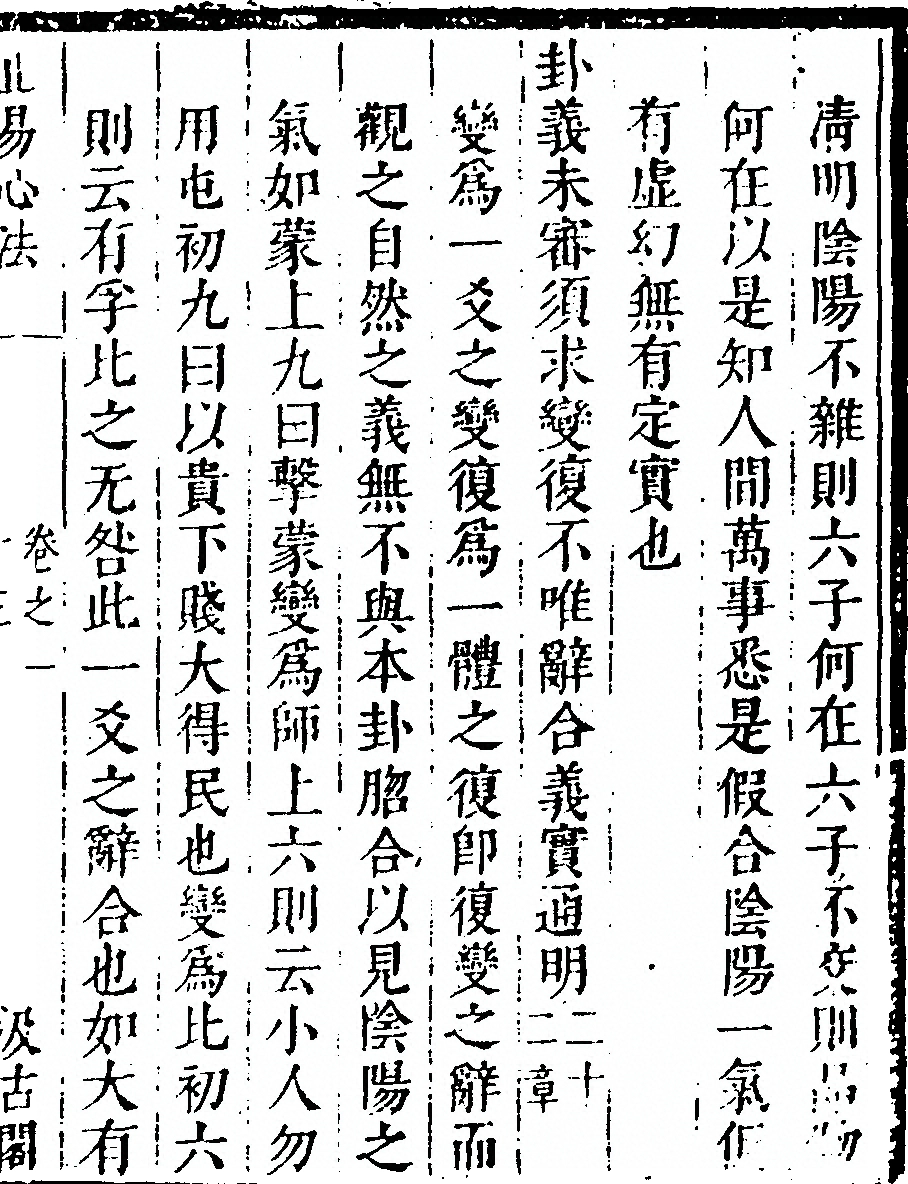 清明陰陽不雜則六子何在六子不交則品物
何在以是知人間萬事悉是假合陰陽一氣但
有虛幻無有定實也
卦義未審須求變復不唯辭合義實通明二十二章
變爲一爻之變復爲一體之復卽復變之辭而
觀之自然之義無不與本卦脗合以見陰陽之
氣如蒙上九曰擊蒙變爲師上六則云小人勿
用屯初九曰以貴下賤大得民也變爲比初六
則云有孚比之无咎此一爻之辭合也如大有
易心法 卷之一 汲古閣